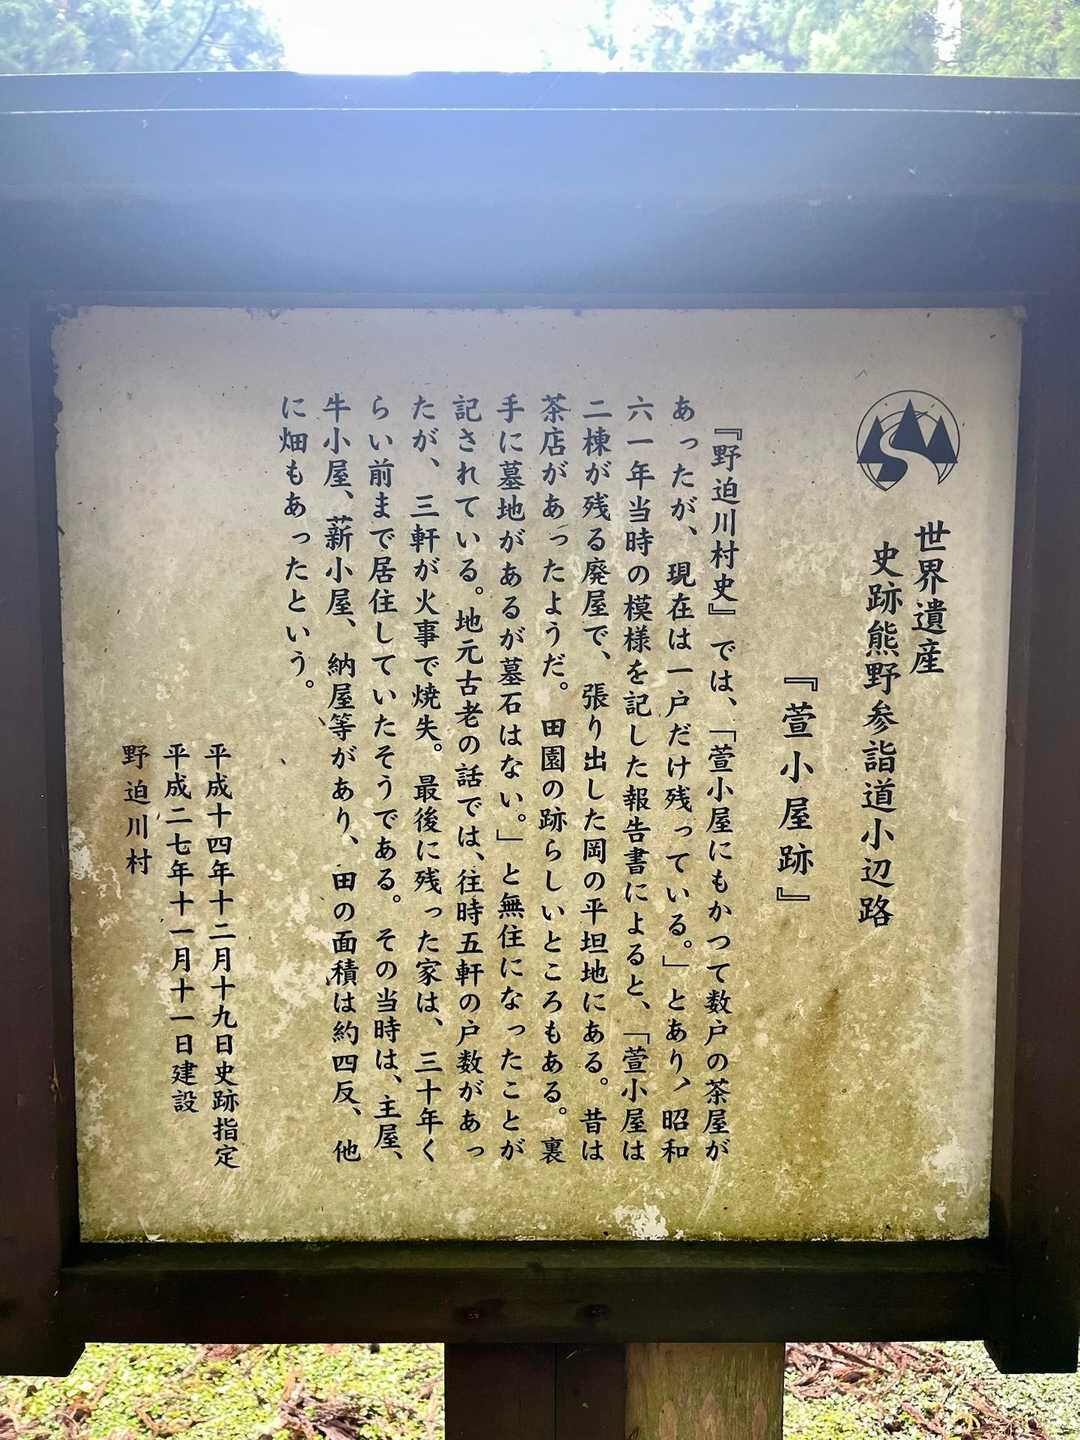 世界遺産
史跡熊野参詣道小辺路
『萱小屋跡』
『野迫川村史』では、「萱小屋にもかつて数戸の茶屋が
あったが、現在は一戸だけ残っている。」とあり、昭和
六一年当時の模様を記した報告書によると、「萱小屋は
二棟が残る廃屋で、張り出した岡の平坦地にある。昔は
茶店があったようだ。田園の跡らしいところもある。裏
手に墓地があるが墓石はない。」と無住になったことが
記されている。地元古老の話では、往時五軒の戸数があっ
たが、三軒が火事で焼失。最後に残った家は、三十年く
らい前まで居住していたそうである。その当時は、主屋、
牛小屋、薪小屋、納屋等があり、田の面積は約四反、他
に畑もあったという。
平成十四年十二月十九日史跡指定
平成二七年十一月十一日建設
野迫川村